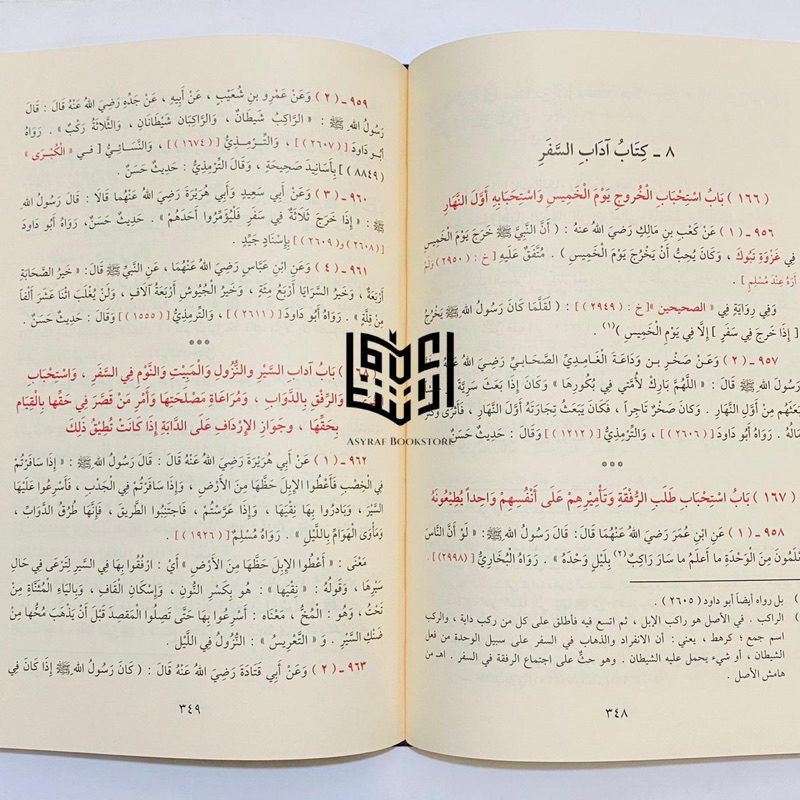 ٨ - كِتَابُ آدَابِ السَّفَرِ
( ١٦٦ ) بَابُ اسْتِحْبَابِ الْخُروجِ يَوْمَ الْخَمِيسِ وَاسْتِحْبَابِهِ أَوَّلَ النَّهَارِ
٩٥٦ - ( ١ ) عَنْ كَعْبِ بنِ مَالِكٍ رَضِيَ اللهُ عنهُ : ( أَنَّ النَّبِيَّ ﷺ خَرَجَ يَوْمَ الْخَمِيسِ
فِي غَزْوَةِ تَبُوكَ ، وَكَانَ يُحِبُّ أَنْ يَخْرُجَ يَوْمَ الْخَمِيسِ ) . مُتَّفَقٌ عَلَيْهِ [ خ : ( ٢٩٥٠ ) وَلَمْ
أَرَهُ عِنْدَ مُسْلِمٍ ]
وَفِي رِوَايَةٍ فِي « الصحيحين » [ خ : ( ٢٩٤٩ ) ] : ( لَقَلَّمَا كَانَ رَسُولُ اللهِ ﷺ يَخْرُجُ
[ إِذَا خَرَجَ فِي سَفَرٍ ] إِلَّا فِي يَوْمِ الْخَمِيسِ )(١) .
٩٥٧ - ( ٢ ) وَعَنْ صَخْرِ بنِ وَدَاعَةَ الْغَامِدِيِّ الصَّحَابِيِّ رَضِيَ اللهُ عَنْهُ
رَسُولَ اللهِ ﷺ قَالَ : « اللَّهُمَّ بَارِكْ لأُمَّتِي فِي بُكُورِهَا » وَكَانَ إِذَا بَعَثَ سَرِيَّةً
بَعَثَهُمْ مِنْ أَوَّلِ النَّهَارِ . وَكَانَ صَخْرٌ تَاجِراً ، فَكَانَ يَبْعَثُ تِجَارَتَهُ أَوَّلَ النَّهَارِ ، فَأَثْرَى وَكَثُرَ
مَالُهُ . رَوَاهُ أَبُو دَاوُدَ [ ( ٢٦٠٦ ) ] ، وَالتِّرْمِذِيُّ [ ( ١٢١٢ ) ] وَقَالَ : حَدِيثٌ حَسَنٌ .
***
( ١٦٧ ) بَابُ اسْتِحْبَابِ طَلَبِ الرُّفْقَةِ وَتَأْمِيرِهِمْ عَلَى أَنْفُسِهِمْ وَاحِداً يُطِيعُونَهُ
٩٥٨ - ( ١ ) عَنِ ابْنِ عُمَرَ رَضِيَ اللهُ عَنْهُمَا قَالَ : قَالَ رَسُولُ اللهِ ﷺ : « لَوْ أَنَّ النَّاسَ
يَعْلَمُونَ مِنَ الْوَحْدَةِ مَا أَعلَمُ ما سَارَ رَاكِبٌ(٢) بِلَيْلٍ وَحْدَهُ » . رَوَاهُ الْبُخَارِيُّ [ (٢٩٩٨) ] .
( بل رواه أيضاً أبو داود ( ٢٦٠٥ ) .
( الراكب . في الأصل هو راكب الإبل ، ثم اتسع فيه فأطلق على كل من ركب دابة ، والركب
اسم جمع ؛ كرهط ، يعني : أن الانفراد والذهاب في السفر على سبيل الوحدة من فعل
الشيطان ، أو شيء يحمل عليه الشيطان . وهو حثٌّ على اجتماع الرفقة في السفر . اهـ من
هامش الأصل .
٣٤٨
٩٥٩ - ( ٢ ) وَعَنْ عَمْرِو بنِ شُعَيْبٍ ، عَنْ أَبِيهِ ، عَنْ جَدِّهِ رَضِيَ اللهُ عَنْهُ قَالَ : قَالَ
رَسُولُ اللهِ ﷺ : « الرَّاكِبُ شَيطَانٌ ، وَالرَّاكِبَانِ شَيْطَانَانِ ، وَالثَّلاثَةُ رَكْبٌ » . رَوَاهُ
أَبُو دَاودَ [ ( ٢٦٠٧ ) ] ، وَالتِّرْمِذِيُّ [ ( ١٦٧٤ ) ] ، وَالنَّسَائِيُّ [ في « الْكُبْرَى »
( ٨٨٤٩ ) ] بِأَسَانِيدَ صَحِيحَةٍ ، وَقَالَ التِّرْمِذِيُّ : حَدِيثٌ حَسَنٌ .
٩٦٠ - ( ٣ ) وَعَنْ أَبي سَعِيدٍ وَأَبي هُرَيْرَةَ رَضِيَ اللهُ عَنْهُما قَالا : قَالَ رَسُولُ اللهِ
ﷺ : « إِذَا خَرَجَ ثَلاثَةٌ في سَفَرٍ فَلْيُؤَمِّرُوا أَحَدَهُمْ » . حَدِيثٌ حَسَنٌ، رَوَاهُ أَبُو دَاودَ
[ (٢٦٠٨) و( ٢٦٠٩ ) ] بِإِسْنَادٍ جَيِّدٍ .
٩٦١ - ( ٤ ) وَعَنِ ابْنِ عَبَّاسٍ رَضِيَ اللهُ عَنْهُمَا ، عَنِ النَّبِيِّ ﷺ قَالَ : « خَيْرُ الصَّحَابَةِ
أَرْبَعَةٌ ، وَخَيْرُ السَّرَايَا أَرْبَعُ مِئَةٍ ، وَخَيْرُ الْجُيُوشِ أَرْبَعَةُ آلافٍ ، وَلَنْ يُغْلَبَ اثْنَا عَشَرَ أَلْفاً
مِنْ قِلَّةٍ » . رَوَاهُ أَبُو دَاوُدَ [ ( ٢٦١١ ) ] ، وَالتِّرْمِذِيُّ [ ( ١٥٥٥ ) ] وَقَالَ : حَدِيثٌ حَسَنٌ .
***
بَابُ آدابِ السَّيْرِ وَالنُّزُولِ وَالْمَبِيْتِ وَالنَّوْمِ فِي السَّفَرِ ، وَاسْتِحْبَابِ
وَالرِّفْقِ بِالدَّوَابِّ ، وَمُرَاعَاةِ مَصْلَحَتِهَا وَأَمْرِ مَنْ قَصَّرَ فِي حَقِّهَا بِالْقِيَامِ
بِحَقِّهَا ، وَجَوَازِ الإِرْدَافِ عَلَى الدَّابَةِ إِذَا كَانَتْ تُطِيْقُ ذَلِكَ
٩٦٢ - ( ١ ) عَنْ أَبِي هُرَيْرَةَ رَضِيَ اللهُ عَنْهُ قَالَ : قَالَ رَسُولُ اللهِ ﷺ : « إِذَا سَافَرْتُمْ
فِي الْخِصْبِ فَأَعْطُوا الإِبِلَ حَظَّهَا مِنَ الأَرْضِ ، وَإِذَا سَافَرْتُمْ فِي الْجَدْبِ ، فَأَسْرِعُوا عَلَيْهَا
السَّيْرَ ، وَبَادِرُوا بِهَا نِقْيَهَا ، وَإِذَا عَرَّسْتُمْ ، فَاجتَنِبُوا الطَّرِيقَ ، فَإِنَّهَا طُرُقُ الدَّوَابِّ ،
وَمَأْوَى الْهَوَامِّ بِاللَّيْلِ » . رَوَاهُ مُسْلِمٌ [ ( ١٩٢٦ ) ] .
مَعْنَى : « أَعْطُوا الإِبِلَ حَظَّهَا مِنَ الأَرْضِ » أَيْ : ارْفُقُوا بِهَا فِي السَّيرِ لِتَرْعَى فِي حَالِ
سَيْرِهَا ، وَقَولُهُ : « نِقْيَها » : هُو بِكَسْرِ النُّونِ ، وَإِسْكَانِ الْقَافِ ، وَبِاليَاءِ الْمُثَنَّاةِ مِن
تَحْتُ، وَهُو : الْمُخُّ ، مَعْنَاه : أَسْرِعُوا بِهَا حَتَّى تَصِلُوا المَقصِدَ قَبْلَ أَنْ يَذْهَبَ مُخُّها مِن
ضَنْكِ السَّيْرِ . وَ « التَّعْرِيسُ » : النُّزُولُ فِي اللَّيْلِ .
٩٦٣ - ( ٢ ) وَعَنْ أَبِي قَتَادَةَ رَضِيَ اللهُ عَنْهُ قَالَ : ( كَانَ رَسُولُ اللهِ ﷺ إِذَا كَانَ فِي
٣٤٩
ASYRAF BOOKSTORE